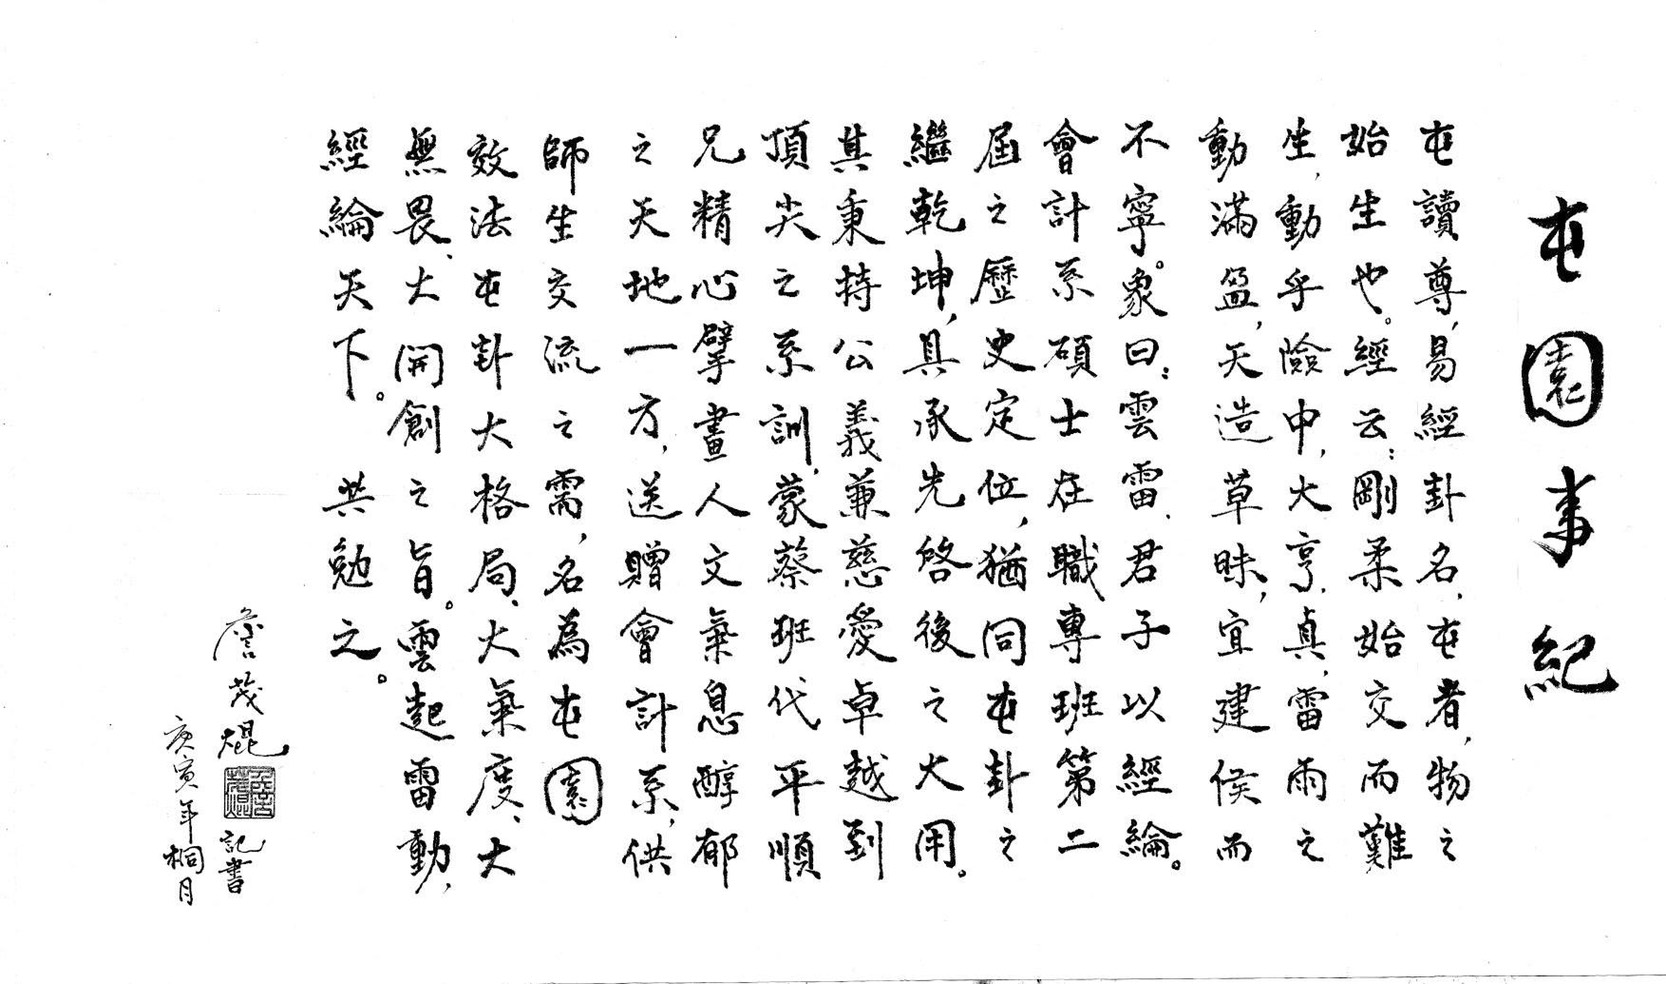 屯園事紀
屯讀尊,易經卦名、屯者,物之
始生也。經云:剛柔始交而難
生,動乎險中,大亨、貞,雷雨之
動滿盈,天造草昧,宜建侯而
不寧。象曰:雲雷、君子以經綸。
會計系碩士在職專班第二
屆之歷史定位,猶同屯卦之
繼乾坤,具承先啓後之大用。
其秉持公義兼慈愛卓越到
頂尖之系訓,蒙蔡班代平順
兄精心擘畫人文氣息醇郁
之天地一方,送贈會計系,供
師生交流之需,名為屯園
效法屯卦大格局、大氣度、大
無畏、大開創之旨。雲起雷動,
經綸天下。 共勉之。
詹茂焜 記書
庚寅年桐月